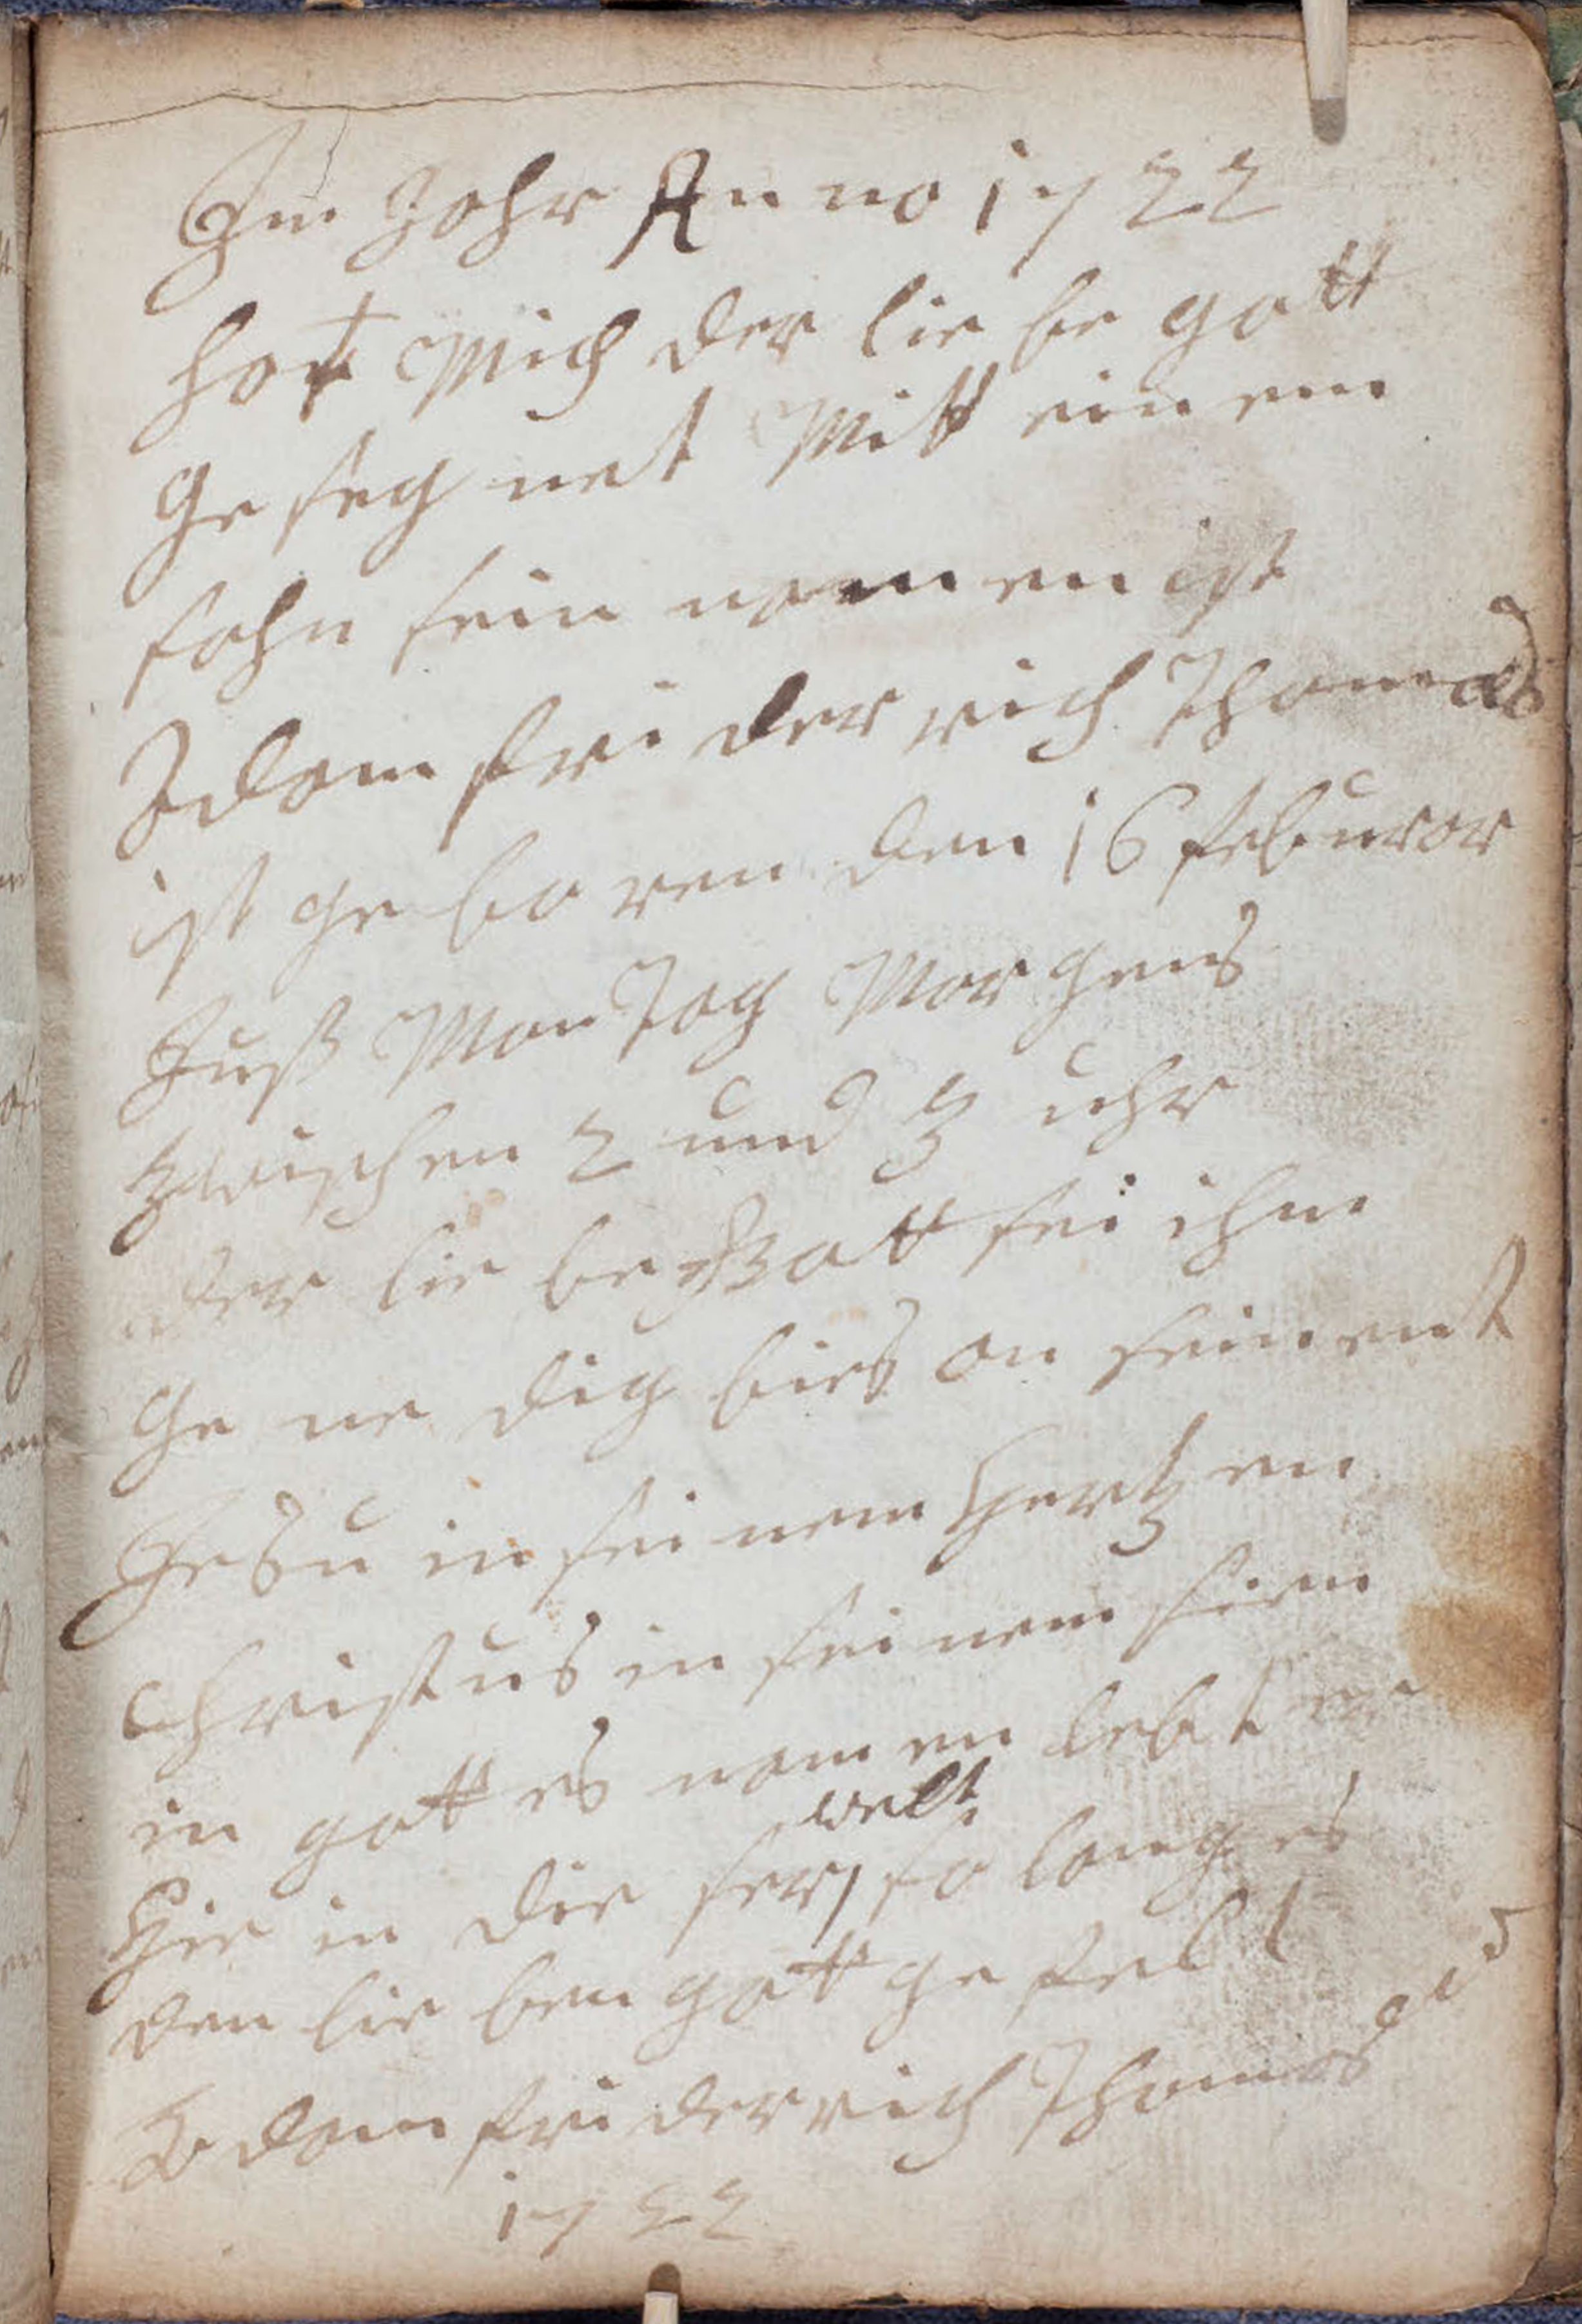 Im Jahr Anno 1722
hat Mich der lie be gott
Ge seg net Mitt ein em
sohn sein nam en ist
Adam fri der rich Thomas
ist ge bo ren den 16 feburar
Juß Man Tag Mor gens
zwischen 2 und 3 uhr
der lie be Gott sei ihm
Ge ne dig bies an sein ent
Jesu in sei nem Hertz en
Christus in sei nem sinn
in gott es nam en lebt er
Hie in die ser welt so lang es
den lie ben gott ge felt
Adam fri der rich Thomas
1722